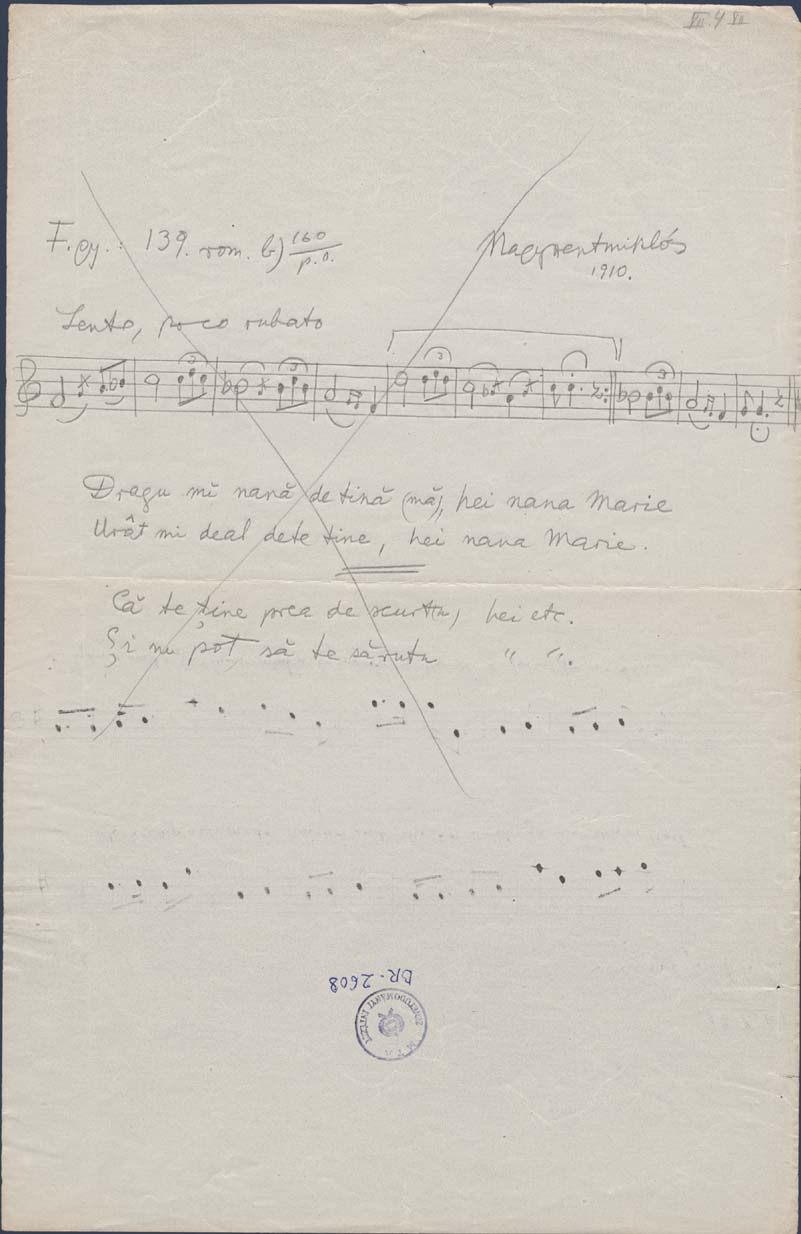 VII. 4 VII
F. gy.: 139. rom. b) 160/p.o.
Nagyszentmiklós
1910.
Lento, poco rubato
3 3 3 3
Dragu mi nană de tină (mă), hei nana Marie
Urât mi deal dete tine, hei nana Marie.
Că te ține prea de scurtu, hei etc.
Și nu pot să te sărutu " ".
BR-2608
M. T. A.